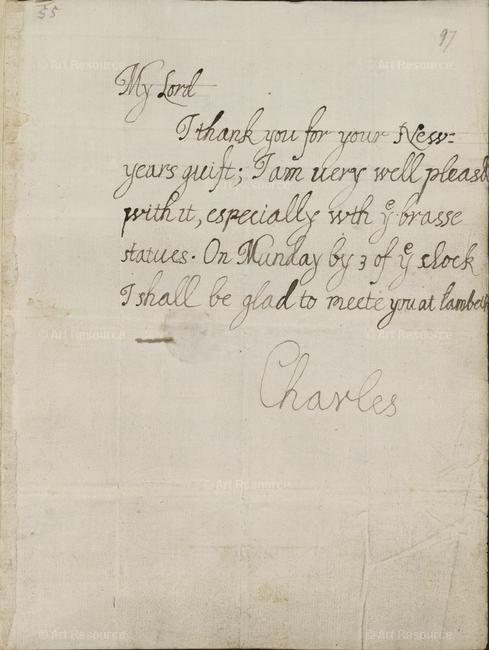 55
97
My Lord
I thank you for your New=
years guift; I am uery well pleasd
with it, especially wth ye brasse
statues. On Munday by 3 of ye clock
I shall be glad to meete you at lambeth
Charles
© Art Resource